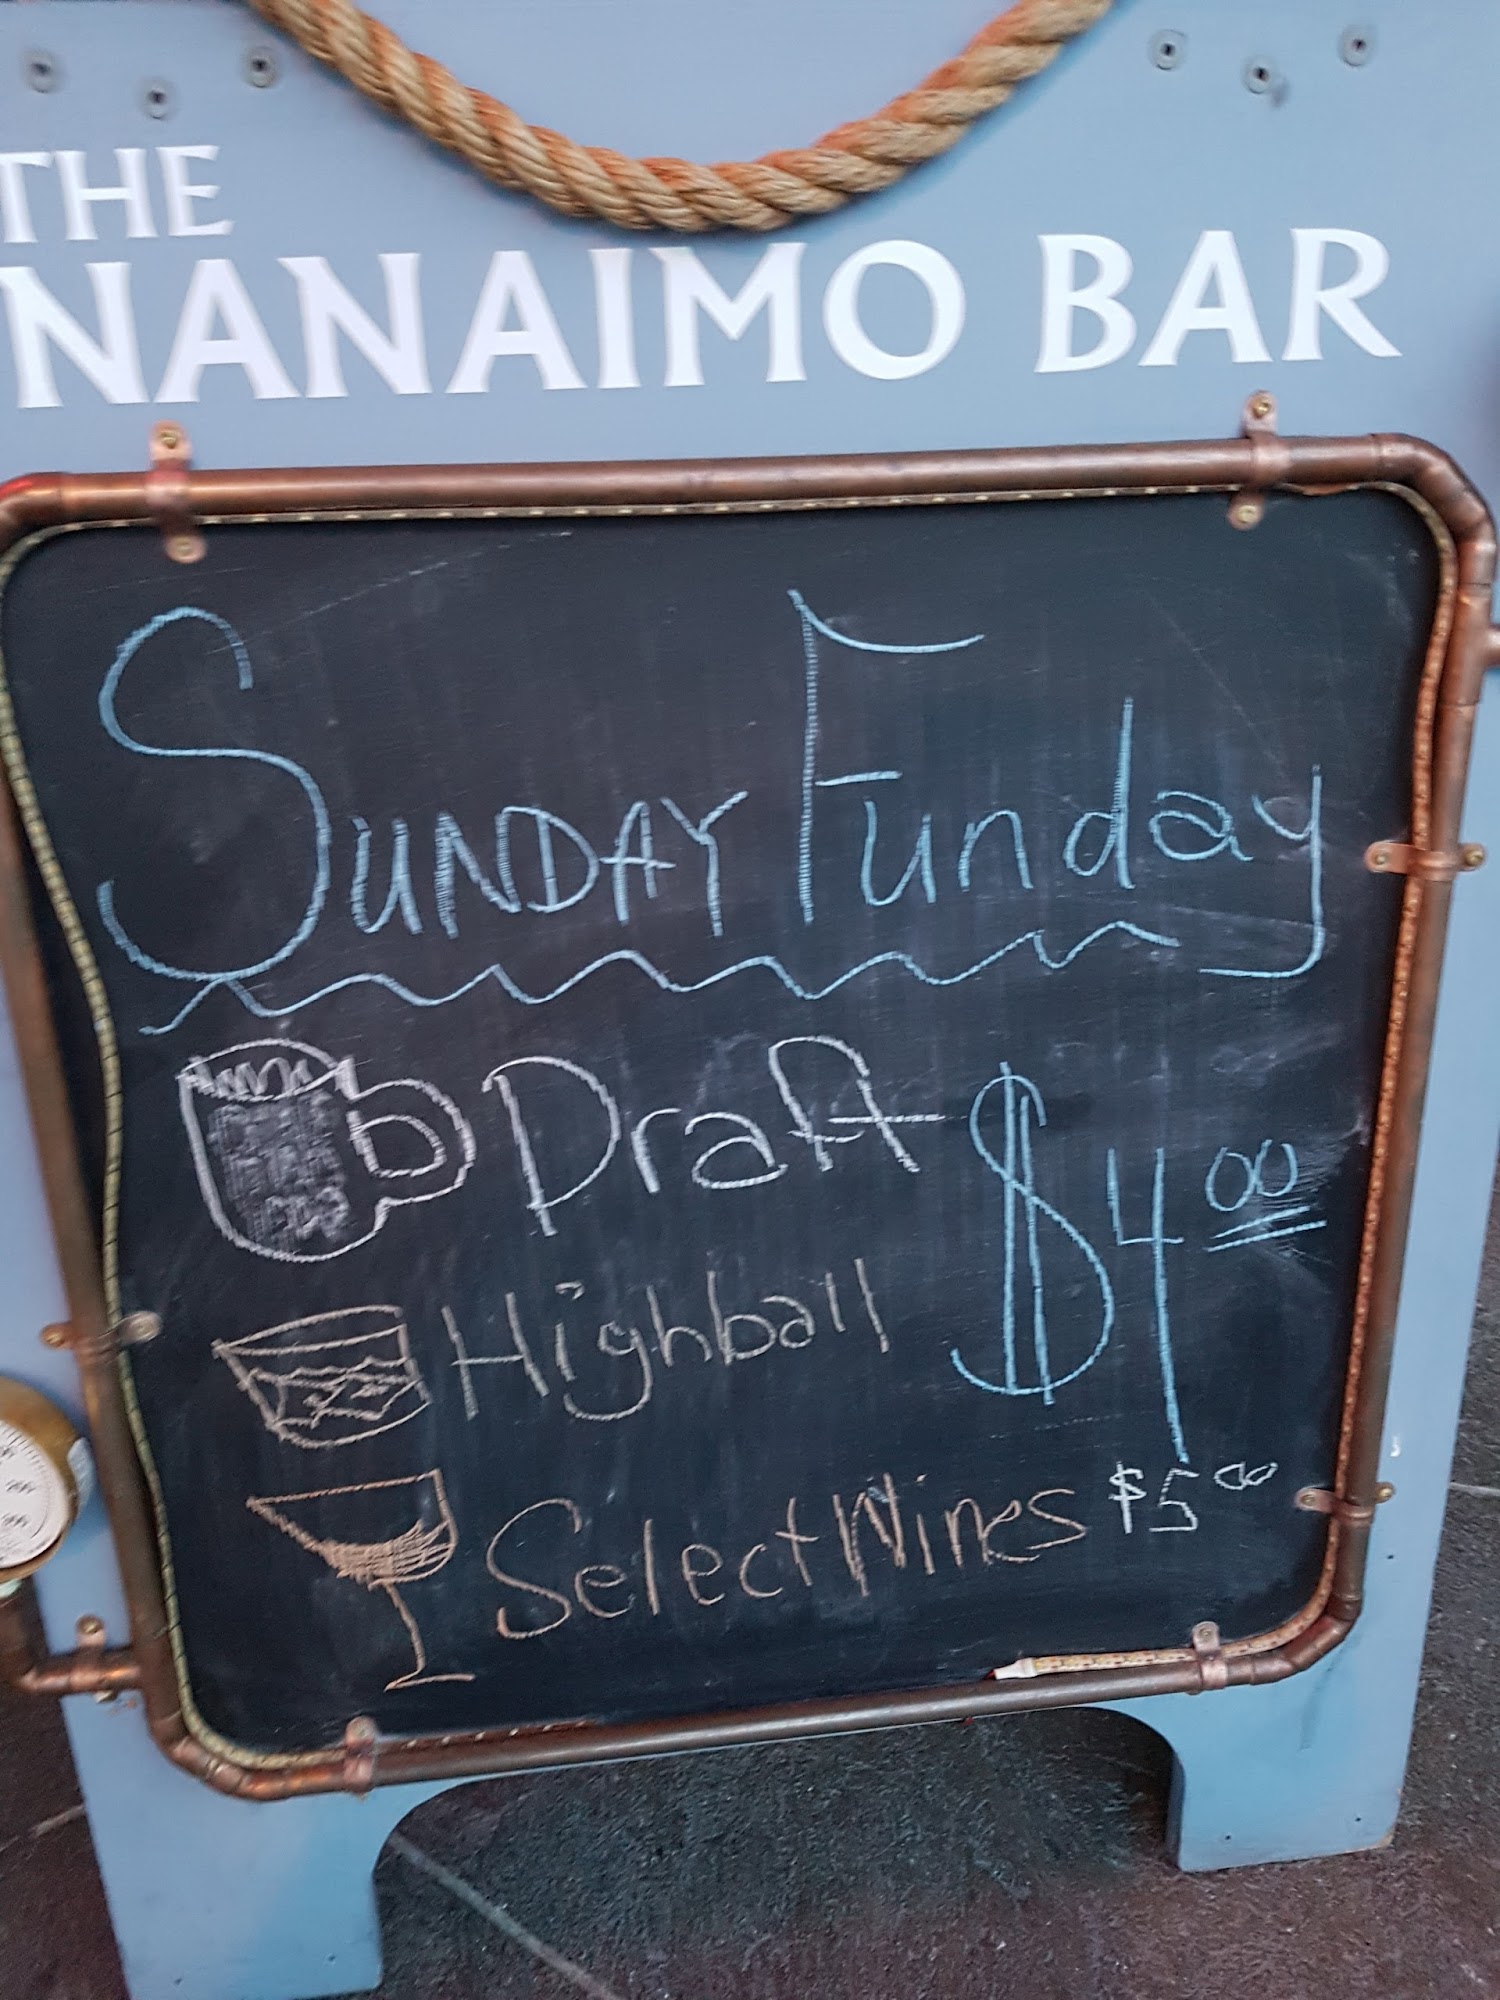 THE
NANAIMO BAR
SUNDAY Funday
Draft $4.00
Highball
Select Wines $5.00